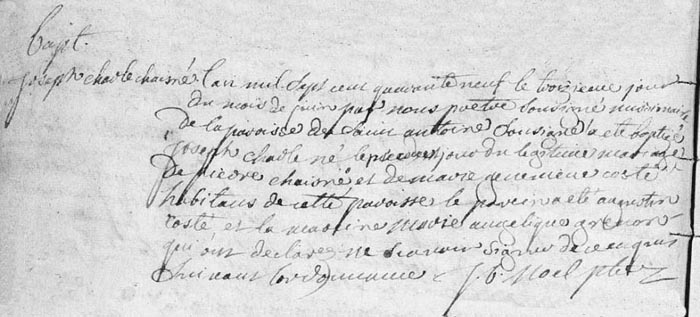 Bapt.
joseph charle chaisné. L'an mil sept cent quarante neuf le troisieme jour
du mois de juin par nous pretre soussigné missionaire
de la paroisse de saint antoine soussigné a eté baptisé
joseph charle né le jour du legitime mariage
de pierre chaisné et de marie genevieve costé
habitans de cette paroisse le parein a eté augustin
costé et la mareine marie angelique grenon
qui ont declarez ne scavoir signer de ce enquis
suivant l'ordonnance J. B. Noel ptre